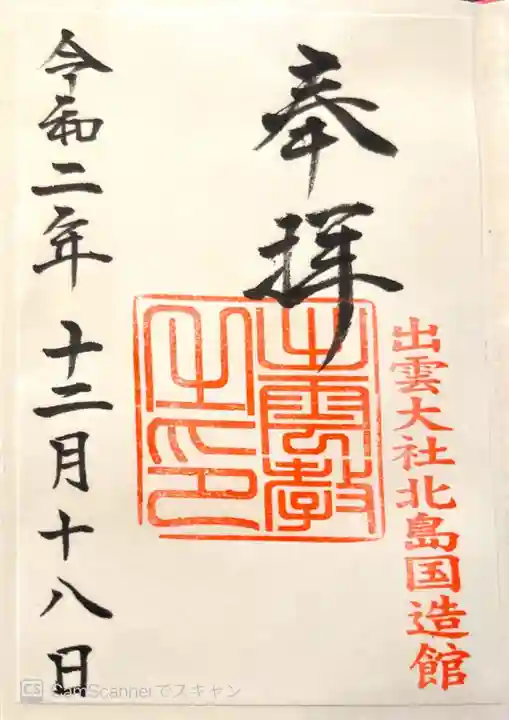 奉拝
出雲大社北島国造館
出雲教
之印
令和二年十二月十八日
CS CamScannerでスキャン